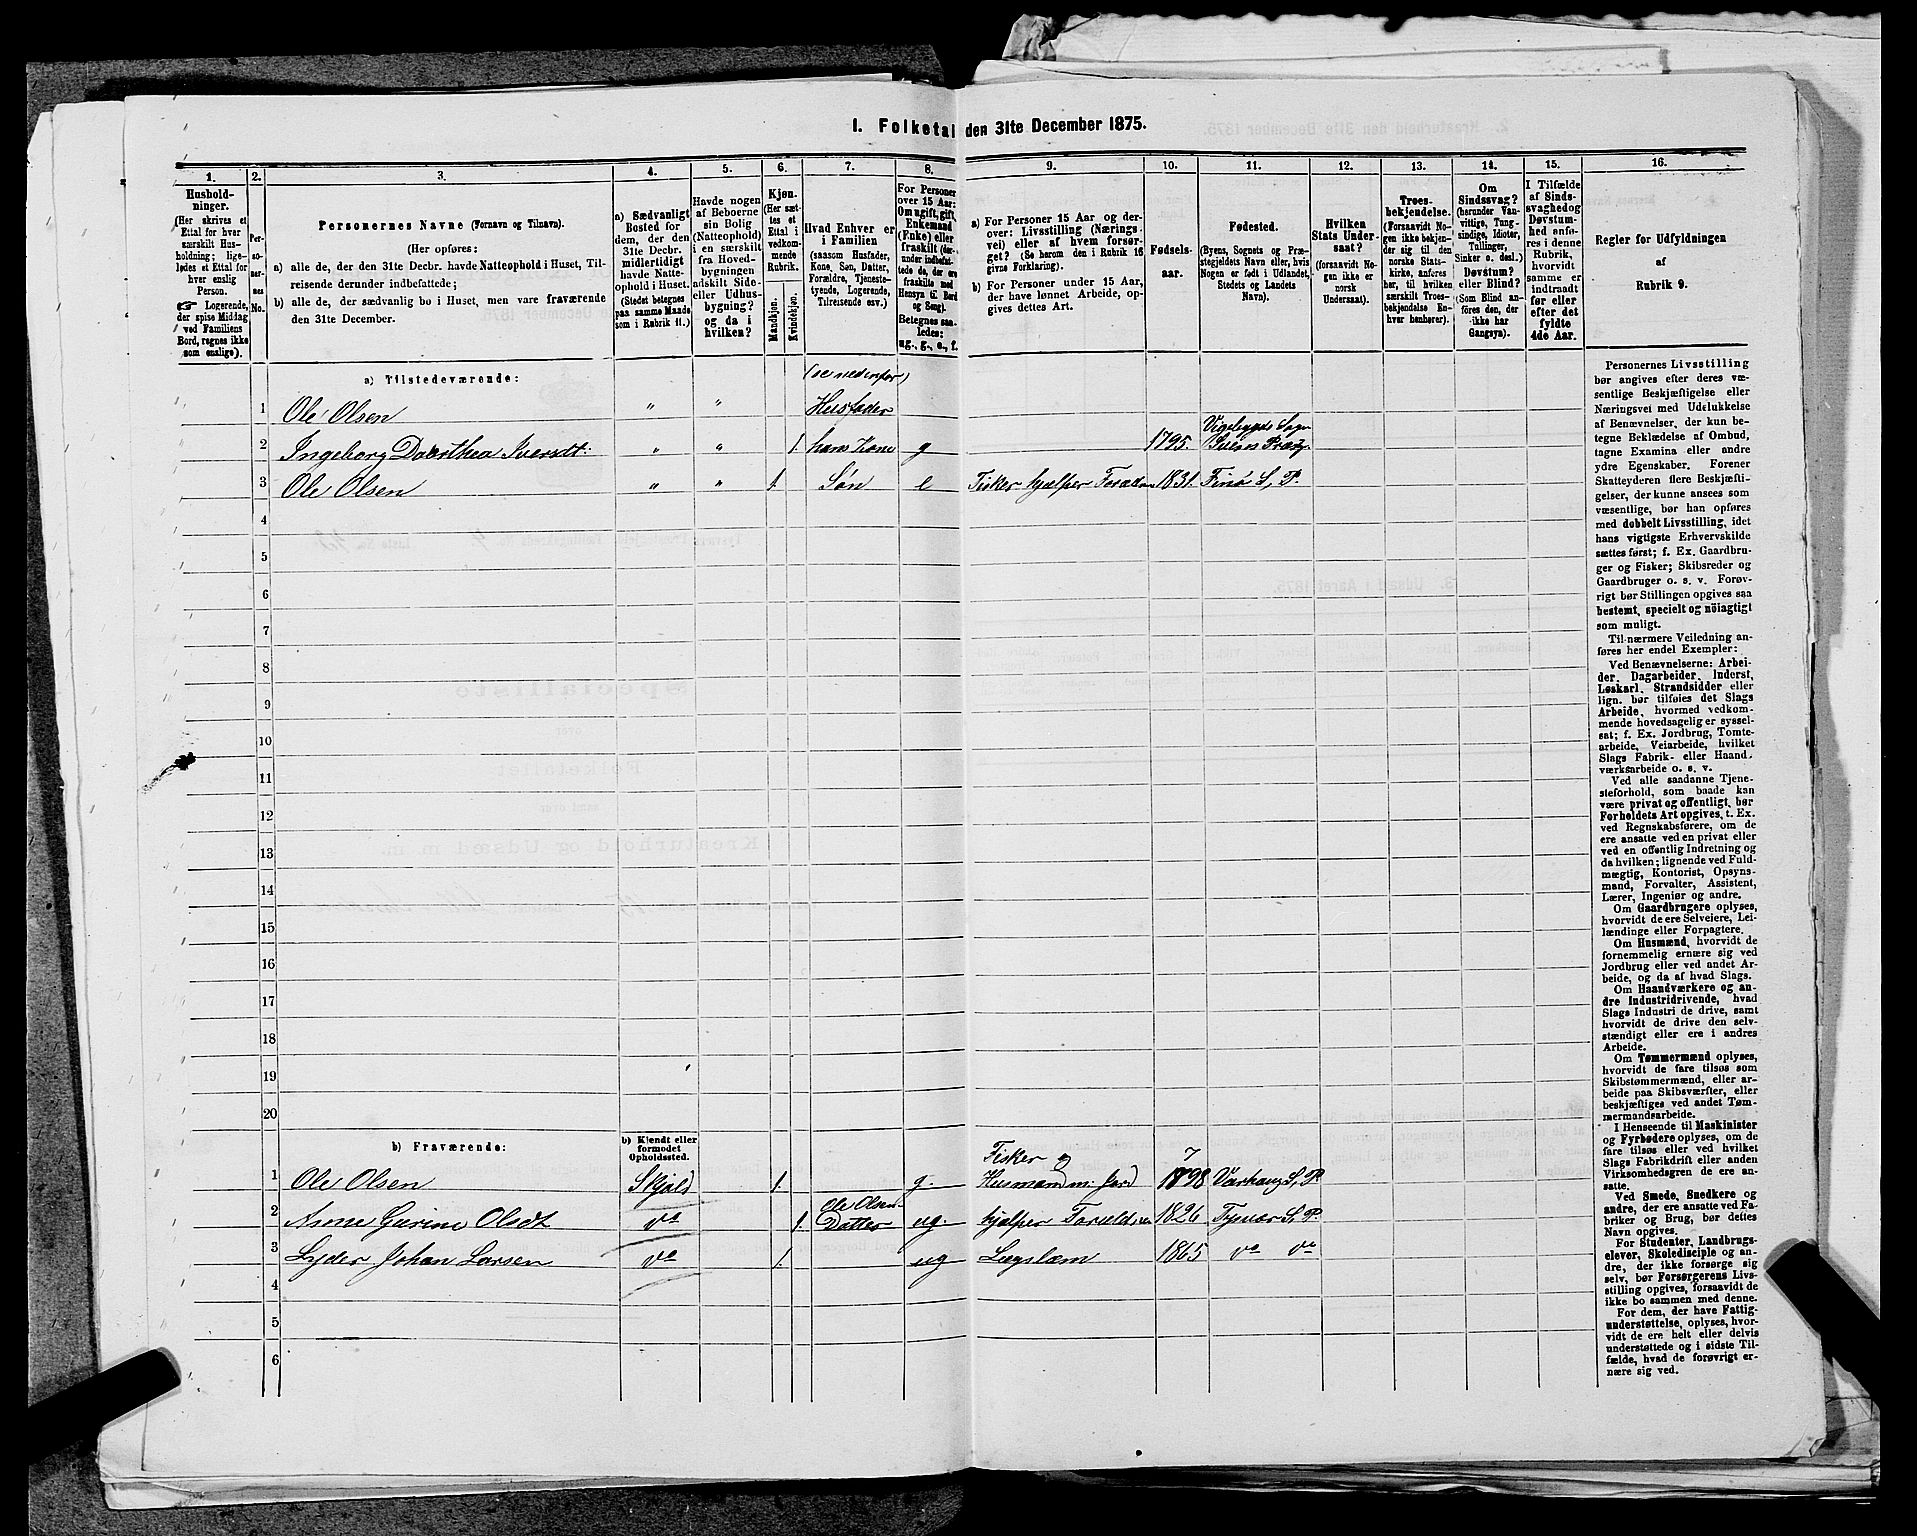 1. Folketal den 31te December 1875.
1. 2. 3. 4. 5. 6. 7. 8. 9. 10. 11. 12. 13. 14. 15. 16.
Hushold-
ninger.
(Her skrives et
Ettal for hver
særskilt Hus-
holdning; lige-
ledes et Ettal for
hver enslig
Person.
☞ Logerende,
der spise Middag
ved Familiens
Bord, regnes ikke
som enslige).
Per-
so-
ner-
nes
No.
Personernes Navne (Fornavn og Tilnavn).
(Her opføres:
a) alle de, der den 31te Decbr. havde Natteophold i Huset, Til-
reisende derunder indbefattede;
b) alle de, der sædvanlig bo i Huset, men vare fraværende
den 31te December.
a) Sædvanligt
Bosted for
dem, der den
31te Decbr.
midlertidigt
havde Natte-
ophold i Huset.
(Stedet betegnes
paa samme Maade
som i Rubrik 11.)
Havde nogen
af Beboerne
sin Bolig
(Natteophold)
i en særskilt
fra Hoved-
bygningen
adskilt Side-
eller Udhus-
bygning?
og da i
hvilken?
Kjøn.
(Her sæt-
tes et
Ettal i
vedkom-
mende
Rubrik.)
Mandkjøn.
Kvindekjøn.
Hvad Enhver er
i Familien
(saasom Husfader,
Kone, Søn, Datter,
Forældre, Tjeneste-
tyende, Logerende,
Tilreisende osv.)
For Personer
over 15 Aar:
Om ugift, gift,
Enkemand
(Enke) eller
fraskilt (der-
under indbefat-
tede de, der ere
fraskilte med
Hensyn til Bord
og Seng).
Betegnes saa-
ledes:
ug., g., e., f.
a) For Personer 15 Aar og der-
over: Livsstilling (Nærings-
vei) eller af hvem forsør-
get? (Se herom den i Rubrik 16
givne Forklaring).
b) For Personer under 15 Aar,
der have lønnet Arbeide, op-
gives dettes Art.
Fødsels-
aar.
Fødested.
(Byens, Sognets og Præ-
stegjeldets Navn eller, hvis
Nogen er født i Udlandet,
Stedets og Landets
Navn).
Hvilken
Stats Under-
saat?
(forsaavidt No-
gen ikke er
norsk
Undersaat).
Troes-
bekjendelse.
(Forsaavidt No-
gen ikke bekjen-
der sig til den
norske Stats-
kirke, anføres
her, til hvilken
særskilt Troes-
bekjendelse En-
hver henhører).
Om
Sindssvag?
(herunder Van-
vittige, Tung-
sindige, Idioter,
Tullinger,
Sinker o. desl.)
Døvstum?
eller Blind?
(Som Blind an-
føres den, der
ikke har
Gangsyn).
I Tilfælde
af Sinds-
svaghed og
Døvstum-
hed anfø-
res i denne
Rubrik,
hvorvidt
samme er
indtraadt
før eller
efter det
fyldte
4de Aar.
Regler for Udfyldningen
af
Rubrik 9.
a) Tilstedeværende: (se nedenfor)
1 Ole Olsen " " Husfader
Vigebygds Sogn
2 Ingeborg Dorthea Iversdt: " " 1. hans Kone g 1795. Præstg.
3 Ole Olsen " " 1. Søn e Fisker hjælper Forældrn 1831. Finø S, P.
4
5
6
7
8
9
10
11
12
13
14
15
16
17
18
19
20
b) Fraværende: b) Kjendt eller
formodet
Opholdssted.
Fisker og
1 Ole Olsen Skjold 1. g. Husmand m: Jord 1798 Varhaug S, P.
Ole Olsen
2 Anne Gurine Olsdt vo 1. Datter ug. hjælper Forældrn 1826 Tysvær S, P.
3 Lyder Johan Larsen vo 1. ug Lægslem 1865 vo vo
4
5
6
Personernes Livsstilling
bør angives efter deres væ-
sentlige Beskjæftigelse eller
Næringsvei med Udelukkelse
af Benævnelser, der kun be-
tegne Beklædelse af Ombud,
tagne Examina eller andre
ydre Egenskaber. Forener
Skatteyderen flere Beskjæfti-
gelser, der kunne ansees som
væsentlige, bør han opføres
med dobbelt Livsstilling, idet
hans vigtigste Erhvervskilde
sættes først; f. Ex. Gaardbru-
ger og Fisker; Skibsreder og
Gaardbruger o. s. v. Forøv-
rigt bør Stillingen opgives saa
bestemt, specielt og nøiagtigt
som muligt.
Til nærmere Veiledning an-
føres her endel Exempler:
Ved Benævnelserne: Arbei-
der, Dagarbeider, Inderst,
Løskarl, Strandsidder eller
lign. bør tilføies det Slags
Arbeide, hvormed vedkom-
mende hovedsagelig er syssel-
sat; f. Ex. Jordbrug, Tomte-
arbeide, Veiarbeide, hvilket
Slags Fabrik- eller Haand-
værksarbeide o. s. v.
Ved alle saadanne Tjene-
steforhold, som baade kan
være privat og offentligt, bør
Forholdets Art opgives, t. Ex.
ved Regnskabsførere, om de
ere ansatte ved en privat eller
ved en offentlig Indretning og
da hvilken; lignende ved Fuld-
mægtig, Kontorist, Opsyns-
mand, Forvalter, Assistent,
Lærer, Ingeniør og andre.
Om Gaardbrugere oplyses,
hvorvidt de ere Selveiere, Lei-
lændinge eller Forpagtere.
Om Husmænd, hvorvidt de
fornemmelig ernære sig ved
Jordbrug eller ved andet Ar-
beide, og da af hvad Slags.
Om Haandværkere og an-
dre Industridrivende, hvad
Slags Industri de drive, samt
hvorvidt de drive den selv-
stændigt eller ere i andres
Arbeide.
Om Tømmermænd oplyses,
hvorvidt de fare tilsøs som
Skibstømmermænd, eller ar-
beide paa Skibsværfter, eller
beskjæftiges ved andet Tøm-
mermandsarbeide.
I Henseende til Maskinister
og Fyrbødere oplyses, om de
fare tilsøs eller ved hvilket
Slags Fabrikdrift eller anden
Virksomhedsgren de ere an-
satte.
Ved Smede, Snedkere og
andre, der ere ansatte ved Fa-
briker og Brug, bør dettes
Navn opgives.
For Studenter, Landbrugs-
elever, Skoledisciple og an-
dre, der ikke forsørge sig
selv, bør Forsørgerens Livs-
stilling opgives, forsaavidt de
ikke bo sammen med denne.
For dem, der have Fattig-
understøttelse, oplyses, hvor-
vidt de ere helt eller delvis
understøttede og i sidste Til-
fælde, hvad de forøvrigt er-
nære sig ved.